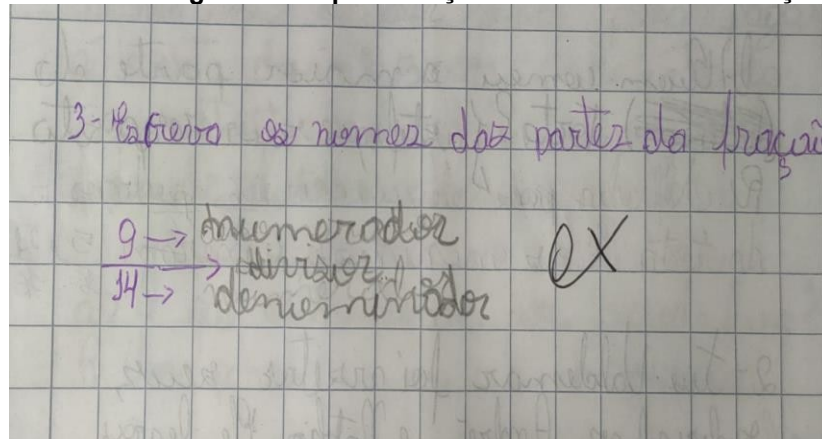 3- Escreva os nomes das partes da fração
9 → numerador
→ divisor
14 → denominador